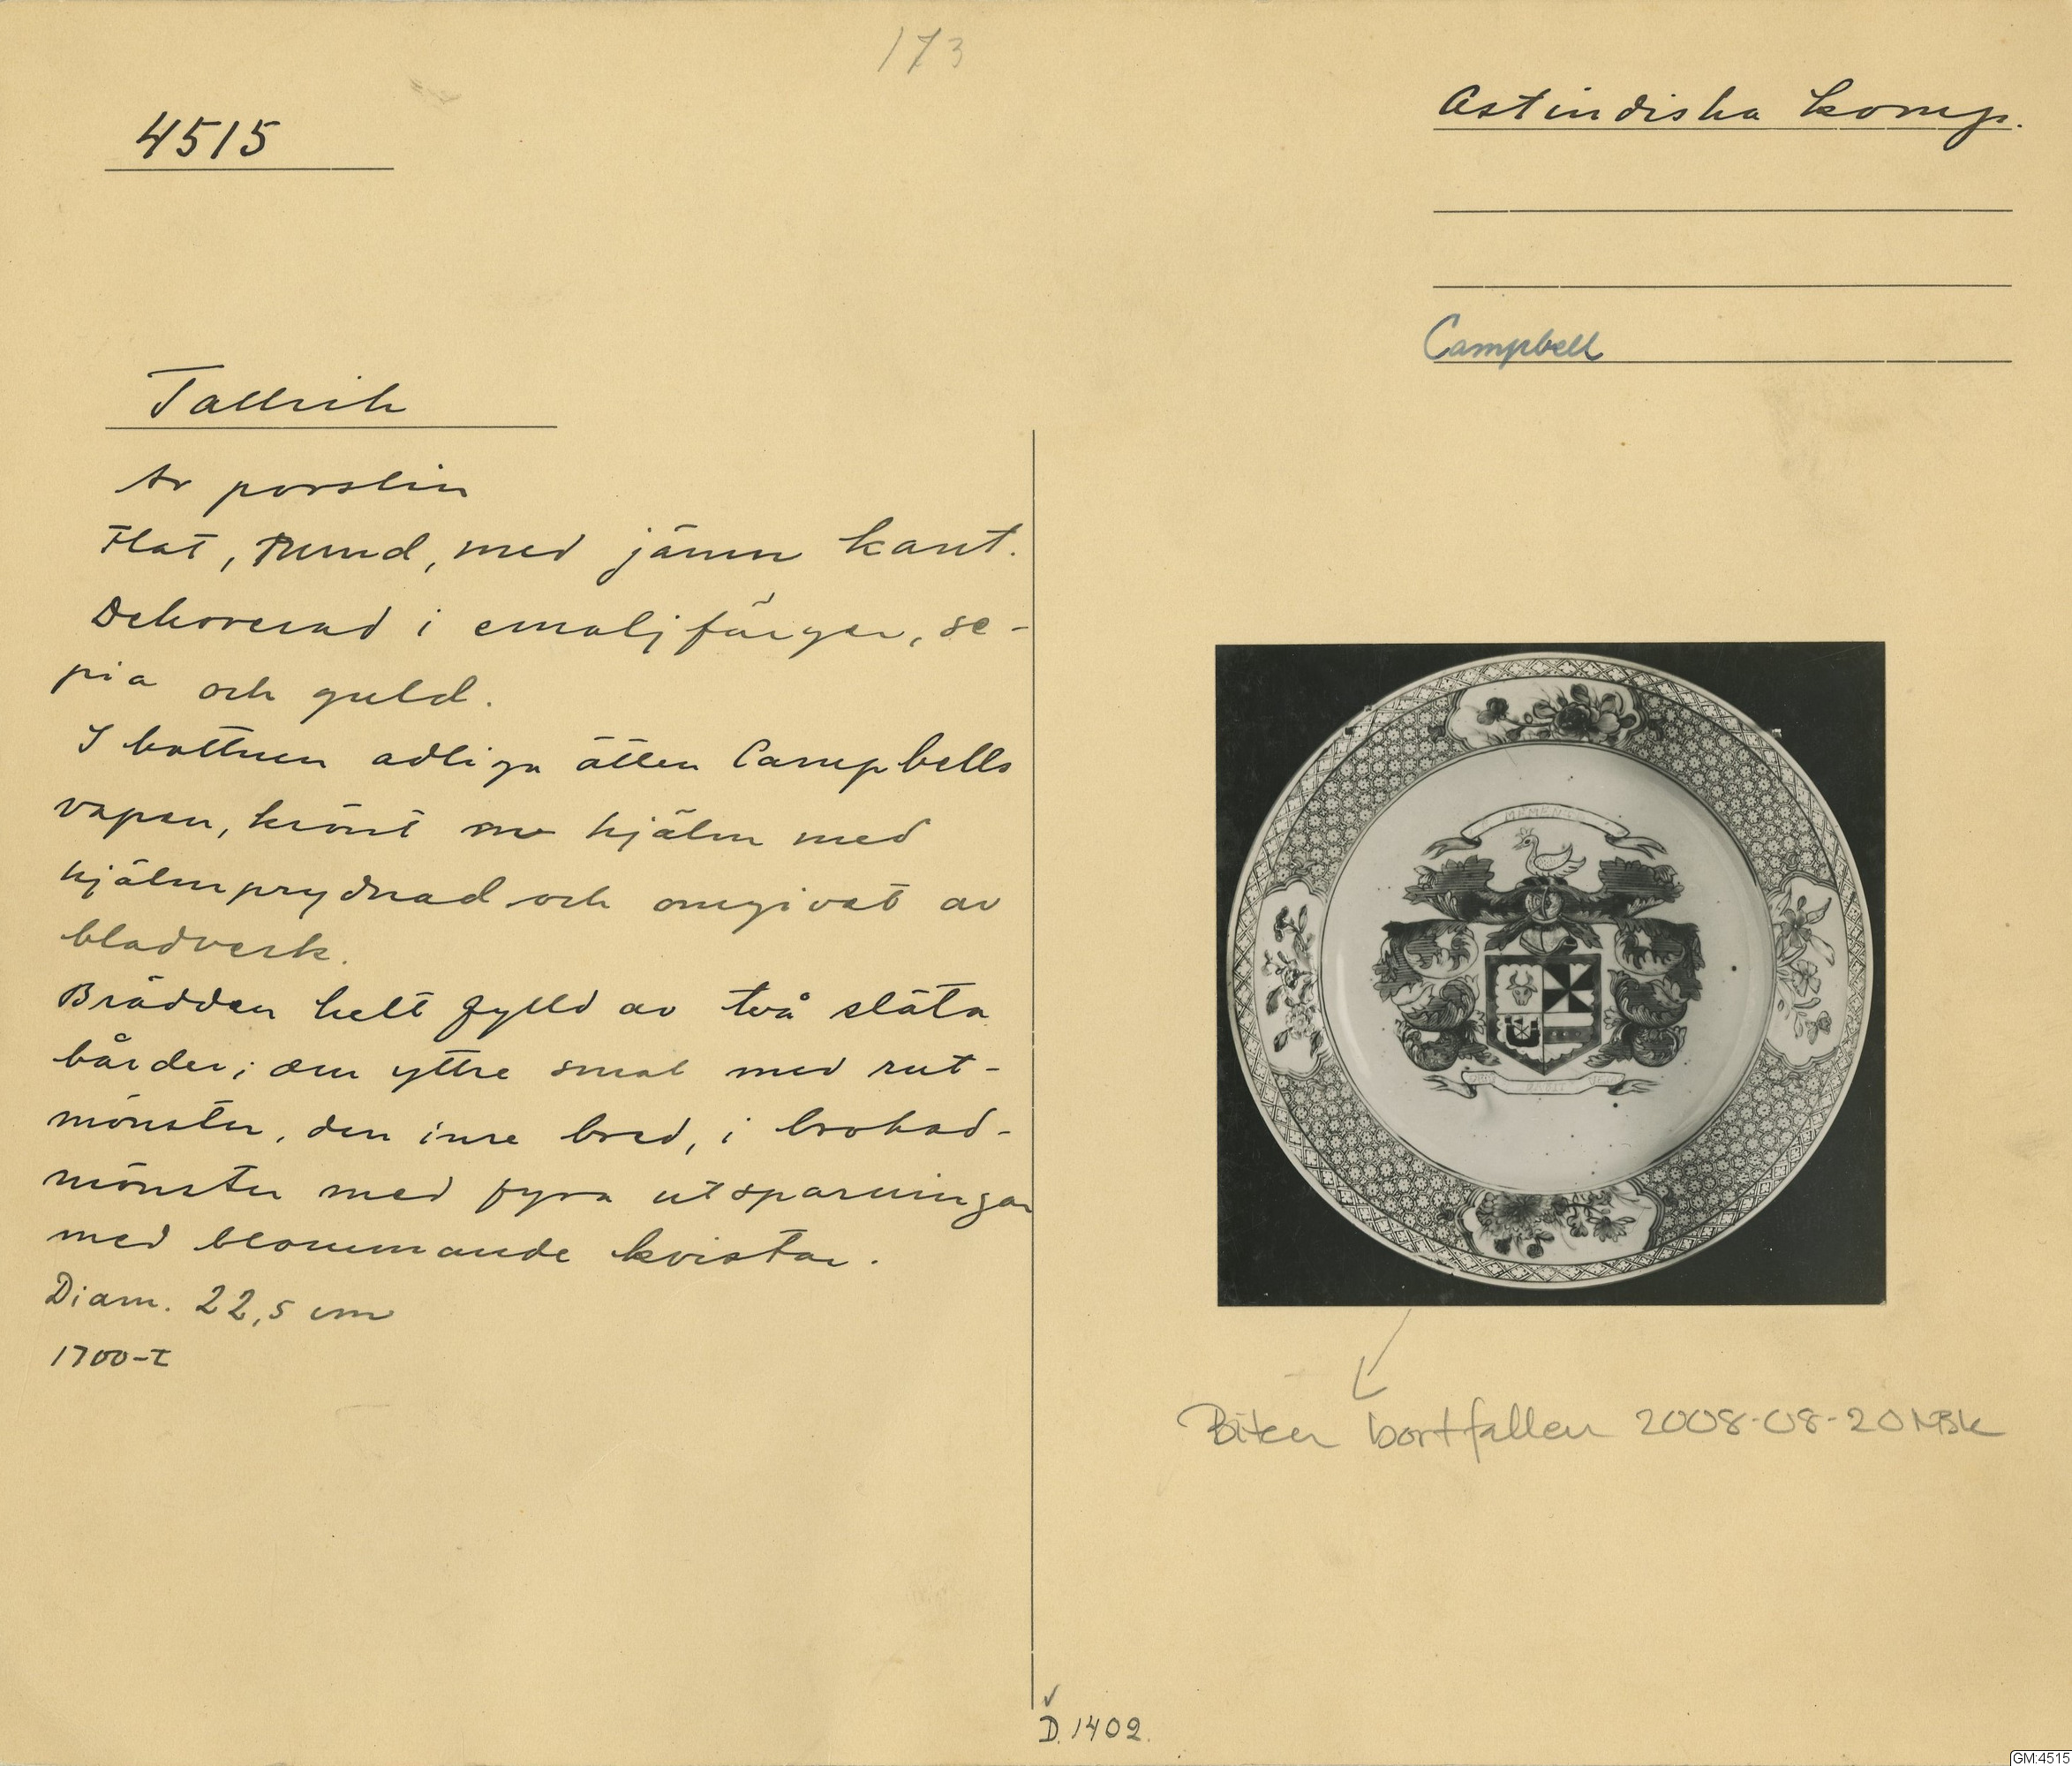 173
4515
Ostindiska komp.
Campbell
Tallrik
Av porslin
Flat, rund, med jämn kant.
Dekorerad i emaljfärger, se-
pia och guld.
I bottnen adliga ätten Campbells
vapen, krönt av hjälm med
hjälmprydnad och omgivet av
bladverk.
Brädden helt fylld av två släta
bårder; den yttre smal med rut-
mönster, den inre bred, i brokad-
mönster med fyra utsparningar
med blommande kvistar.
Diam. 22,5 cm
1700-t
MEMEN
Biten bortfallen 2008-08-20 MBk
D. 1402.
GM:4515